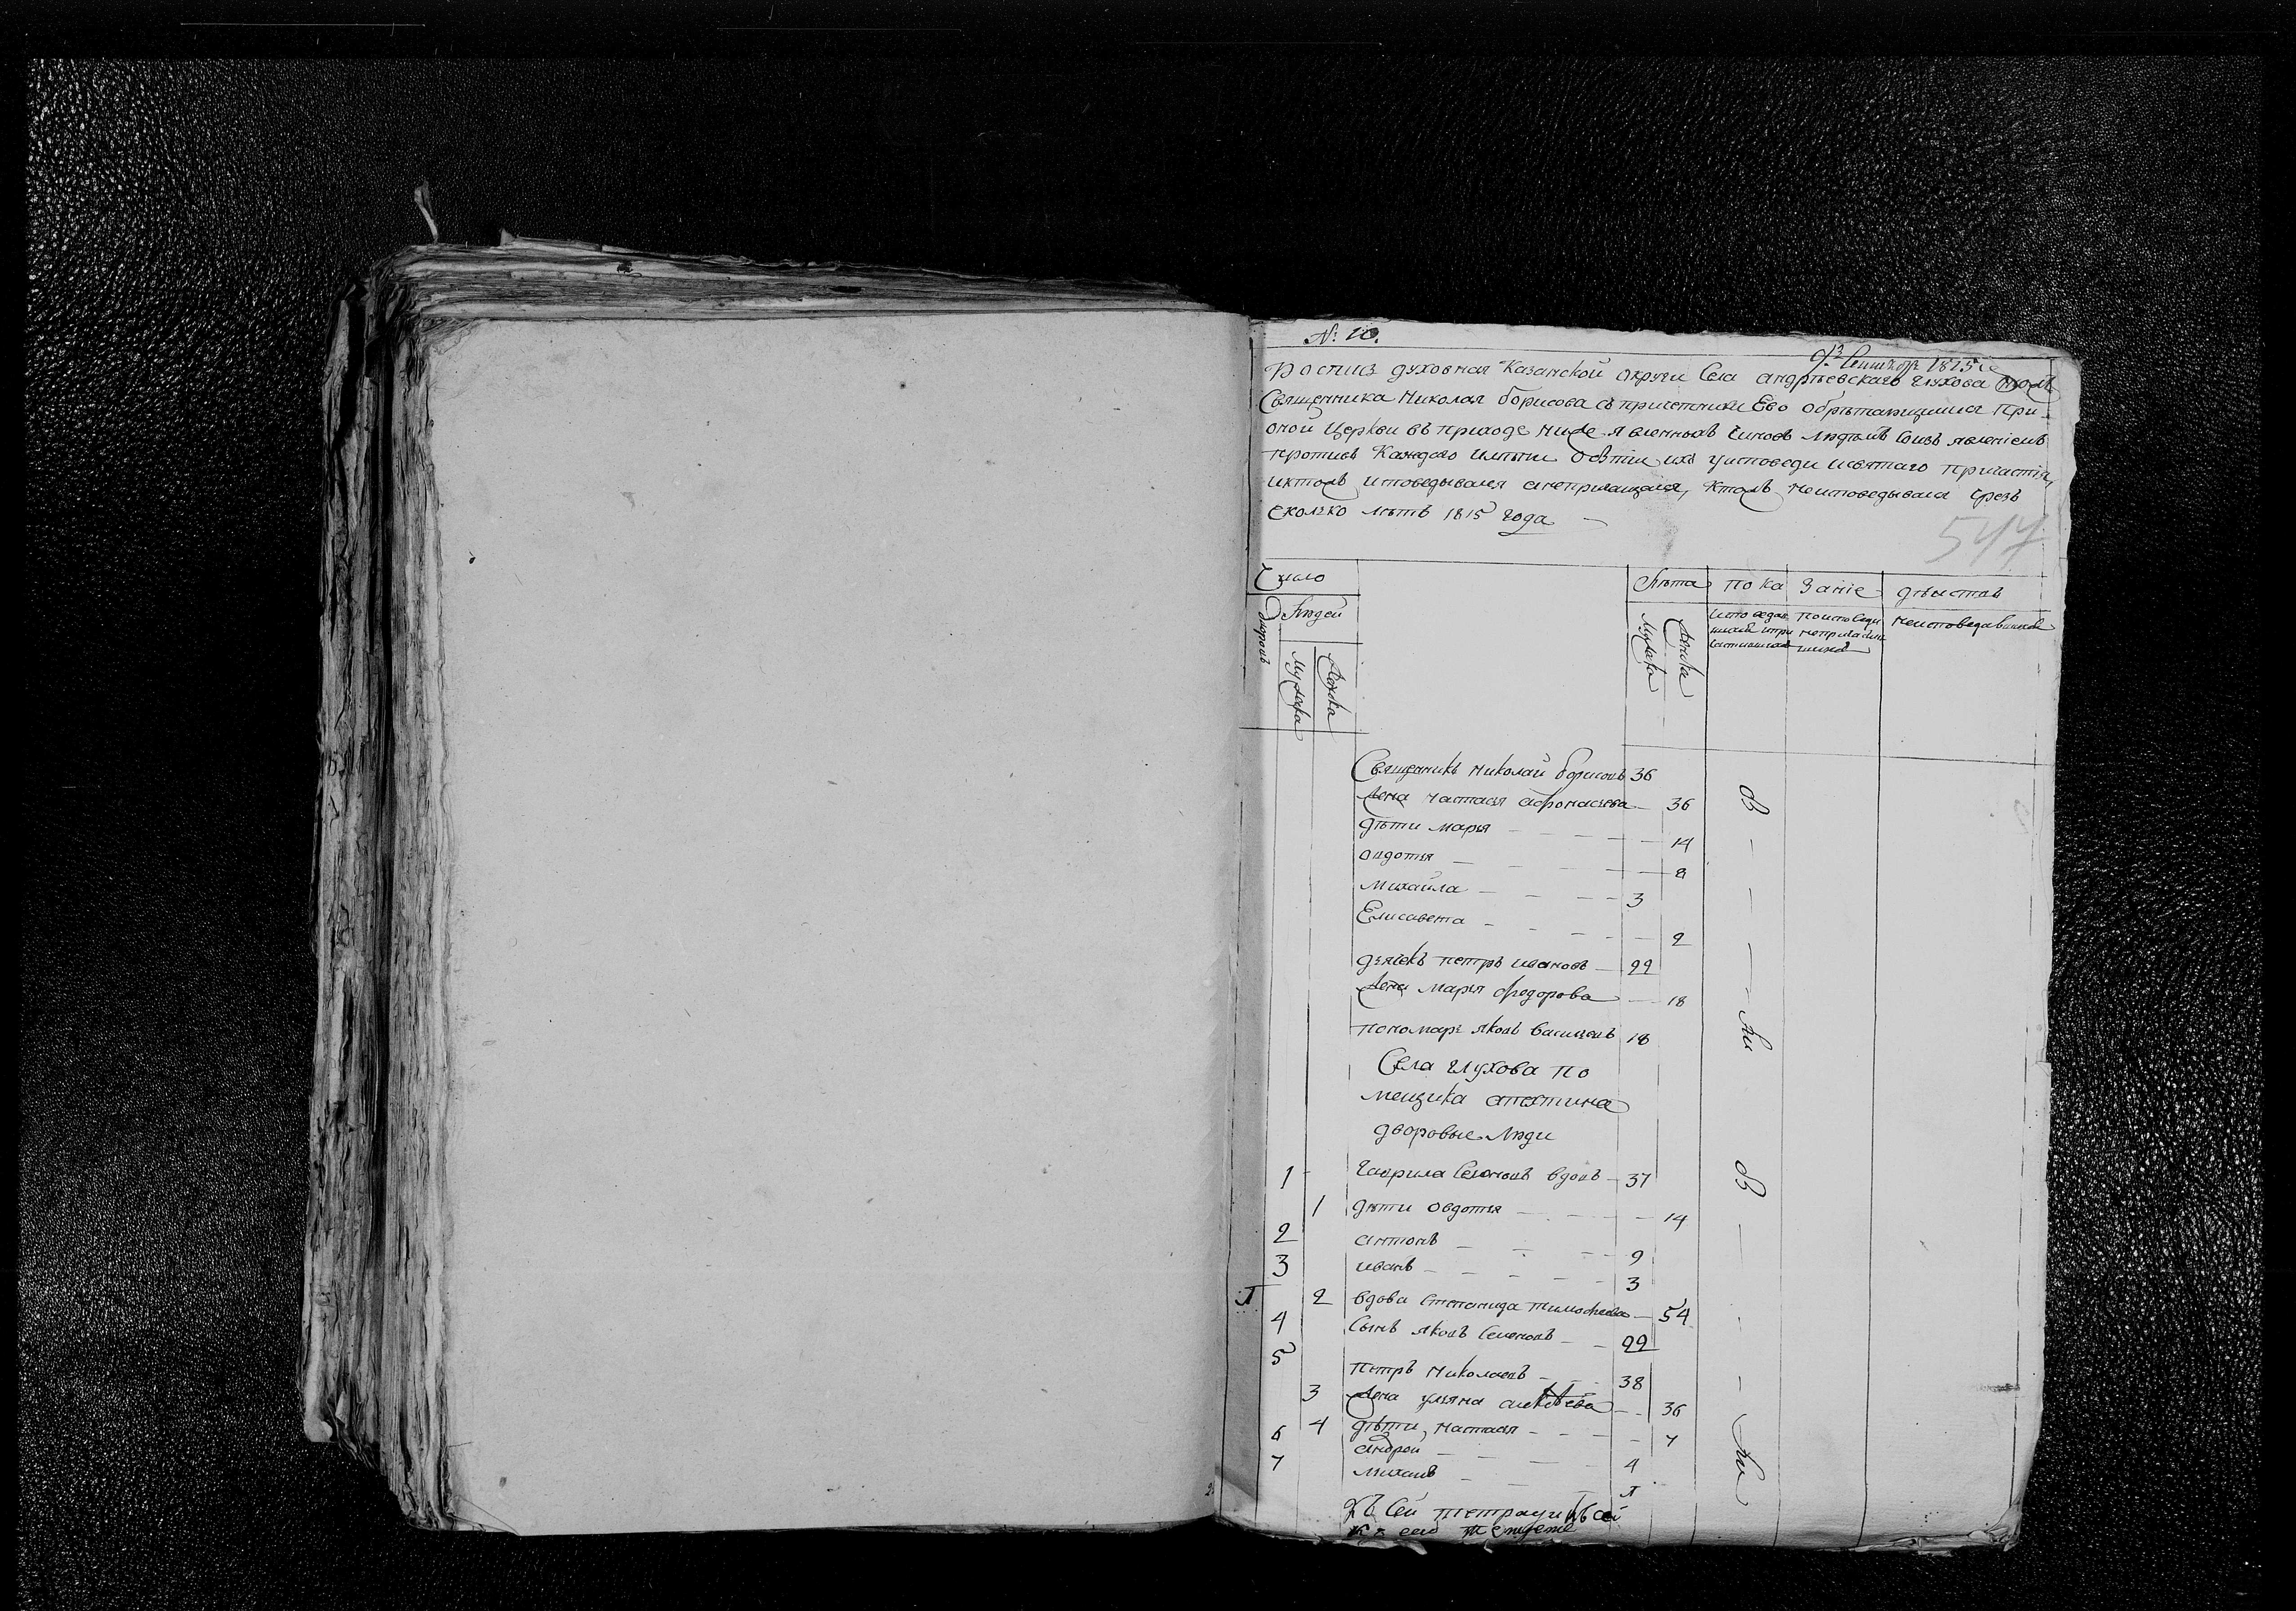 № 10.
Сентября 1815
Роспись духовная Казанской округи Села андрѣевскаго глухова тожъ
Священника Николая борисова съ причетники Ево обрѣтающимися при
оной Церкви въ приходе ниже явленныхъ чиновъ людѣмъ сизъ явленіемъ
противъ Каждаго имяни о бытіи ихъ у исповеди исвятаго причастія,
иктожъ исповедывался анепричащался, ктожъ неисповедывался чрезъ
сколько лѣтъ 1815 года
547
Число
Лѣта пока заніе дѣйства
Людей
Дворовъ
Мужска
Женска
Мужска
Женска
исповедав
шихся ипри
частившихся
поисповеди
непричастив
шихся
неисповедавшихся
Священникъ Николай борисовъ 36
Жена настасья афонасьева 36
дѣти марья 14
овдотья 8
михайла 3
Елисавета 2
дьячекъ петръ ивановъ 22
Жена марья федорова 18
пономарь яковъ васильевъ 18
Села глухова по
мещика апехтина
дворовые люди
1 гаврила Семеновъ вдовъ 37
1 дѣти овдотья 14
2 антонъ 9
3 иванъ 3
2 вдова степанида тимофеева 54
4 Сынъ яковъ Семеновъ 22
5 петръ николаевъ 38
3 Жена ульяна алексѣева 36
4 дѣти, настасья 7
6 андрей 4
7 михаилъ